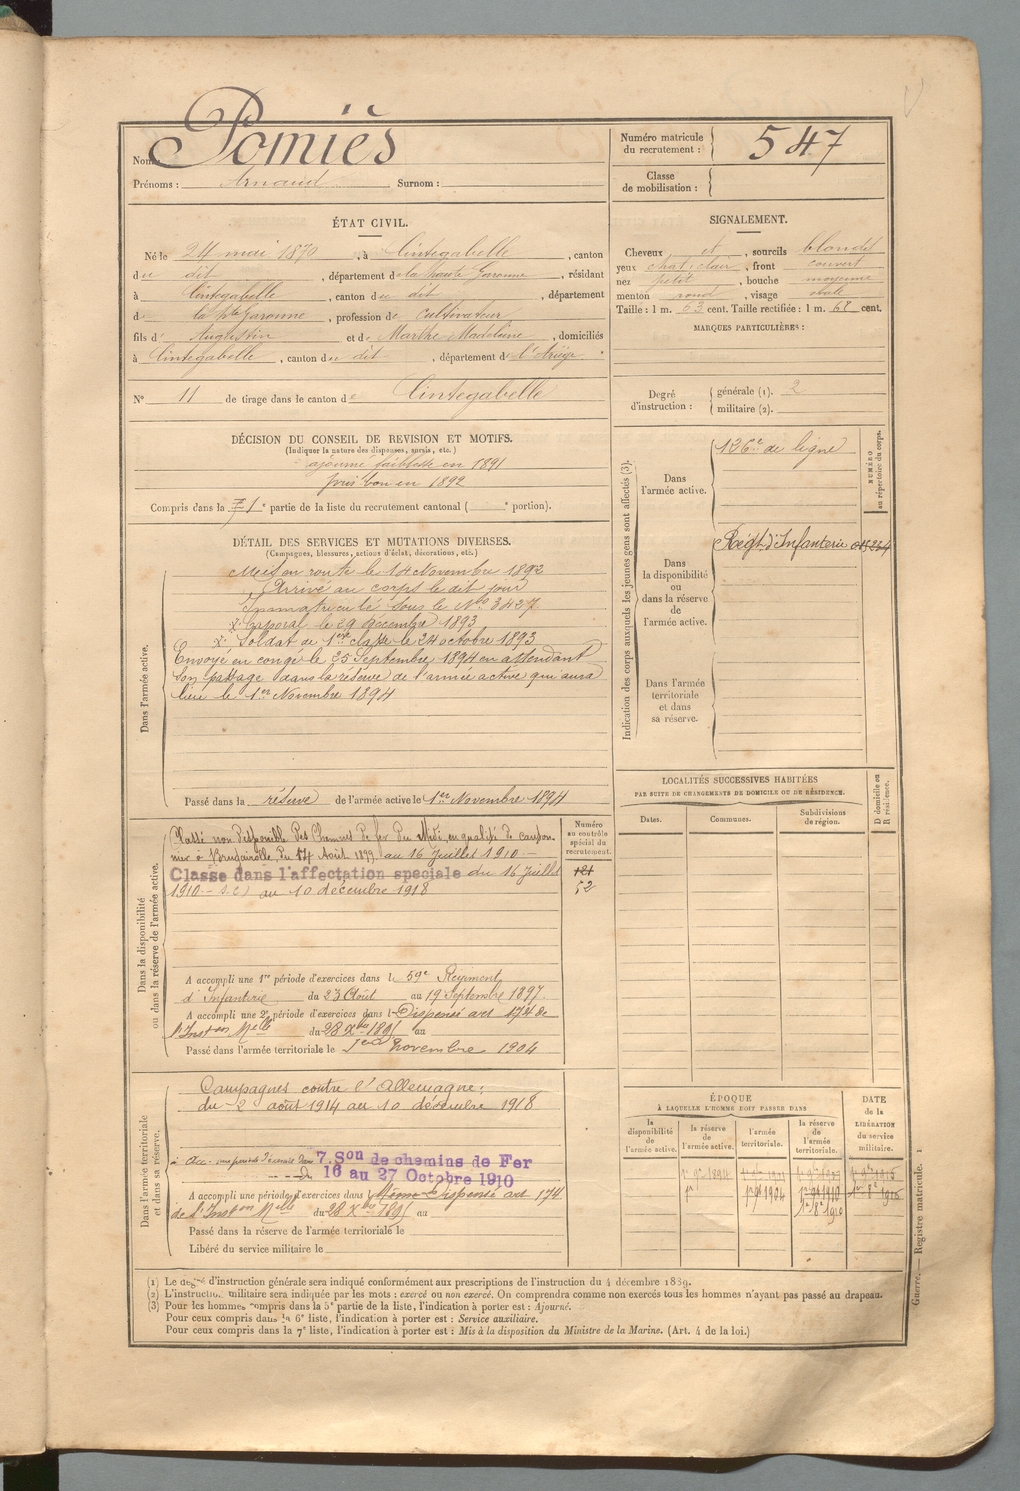 Nom Pomiès
Prénoms : Arnaud Surnom :
Numéro matricule du recrutement : 547
Classe de mobilisation :
ÉTAT CIVIL.
Né le 24 mai 1870, à Cintegabelle, canton
du dit, département de la haute Garonne, résidant
à Cintegabelle, canton du dit, département
de la hte Garonne, profession de Cultivateur
fils d' Augustin et de Marthe Madeleine, domiciliés
à Cintegabelle, canton du dit, département de l'Ariège.
N° 11 de tirage dans le canton de Cintegabelle
SIGNALEMENT.
Cheveux et, sourcils blonds
yeux chat. clair, front couvert
nez petit, bouche moyenne
menton rond, visage ovale
Taille : 1 m. 63 cent. Taille rectifiée : 1 m. 68 cent.
MARQUES PARTICULIÈRES :
Degré d'instruction :
générale (1). 2
militaire (2).
DÉCISION DU CONSEIL DE REVISION ET MOTIFS.
(Indiquer la nature des dispenses, sursis, etc.)
ajourné faiblesse en 1891
pris bon en 1892
Compris dans la 1e partie de la liste du recrutement cantonal ( e portion).
DÉTAIL DES SERVICES ET MUTATIONS DIVERSES.
(Campagnes, blessures, actions d'éclat, décorations, etc.)
Dans l'armée active.
Mis en route le 14 Novembre 1892
Arrivé au corps le dit jour
Immatriculé sous le No 3427
x Caporal le 29 décembre 1893
x Soldat de 1ere classe le 24 octobre 1893
Envoyé en congé le 25 Septembre 1894 en attendant
son passage dans la réserve de l'armée active qui aura
lieu le 1er Novembre 1894
Passé dans la réserve de l'armée active le 1er Novembre 1894
Indication des corps auxquels les jeunes gens sont affectés (3).
NUMÉRO au répertoire du corps.
Dans l'armée active.
126e de ligne
Dans la disponibilité ou dans la réserve de l'armée active.
Régt d'Infanterie
Dans l'armée territoriale et dans sa réserve.
LOCALITÉS SUCCESSIVES HABITÉES
PAR SUITE DE CHANGEMENTS DE DOMICILE OU DE RÉSIDENCE.
Dates. Communes. Subdivisions de région. D domicile ou R résidence.
Dans la disponibilité ou dans la réserve de l'armée active.
Numéro au contrôle spécial du recrutement.
Classé non Disponible des Chemins de fer du Midi en qualité de canton-
nier à du 14 Août 1899 au 16 Juillet 1910 -
Classé dans l'affectation spéciale du 16 juillet
1910 - au 10 décembre 1918
121
52
A accompli une 1re période d'exercices dans le 59e Régiment
d'Infanterie du 23 Août au 19 Septembre 1897.
A accompli une 2e période d'exercices dans l Dispensé art 174 de
l'Inston Melle du 28 Xbre 1895 au
Passé dans l'armée territoriale le 1er Novembre 1904
Dans l'armée territoriale et dans sa réserve.
Campagnes contre l'Allemagne :
du 2 août 1914 au 10 décembre 1918
a acc. une période d'exercices dans 7. Son de chemins de Fer
du 16 au 27 Octobre 1910
A accompli une période d'exercices dans Même Dispensé art 174
de l'Inston Melle du 28 Xbre 1895 au
Passé dans la réserve de l'armée territoriale le
Libéré du service militaire le
ÉPOQUE
À LAQUELLE L'HOMME DOIT PASSER DANS
la disponibilité de l'armée active.
la réserve de l'armée active.
l'armée territoriale.
la réserve de l'armée territoriale.
DATE de la LIBÉRATION du service militaire.
(1) Le degré d'instruction générale sera indiqué conformément aux prescriptions de l'instruction du 4 décembre 1889.
(2) L'instruction militaire sera indiquée par les mots : exercé ou non exercé. On comprendra comme non exercés tous les hommes n'ayant pas passé au drapeau.
(3) Pour les hommes compris dans la 5e partie de la liste, l'indication à porter est : Ajourné.
Pour ceux compris dans la 6e liste, l'indication à porter est : Service auxiliaire.
Pour ceux compris dans la 7e liste, l'indication à porter est : Mis à la disposition du Ministre de la Marine. (Art. 4 de la loi.)
Guerre. — Registre matricule. 1